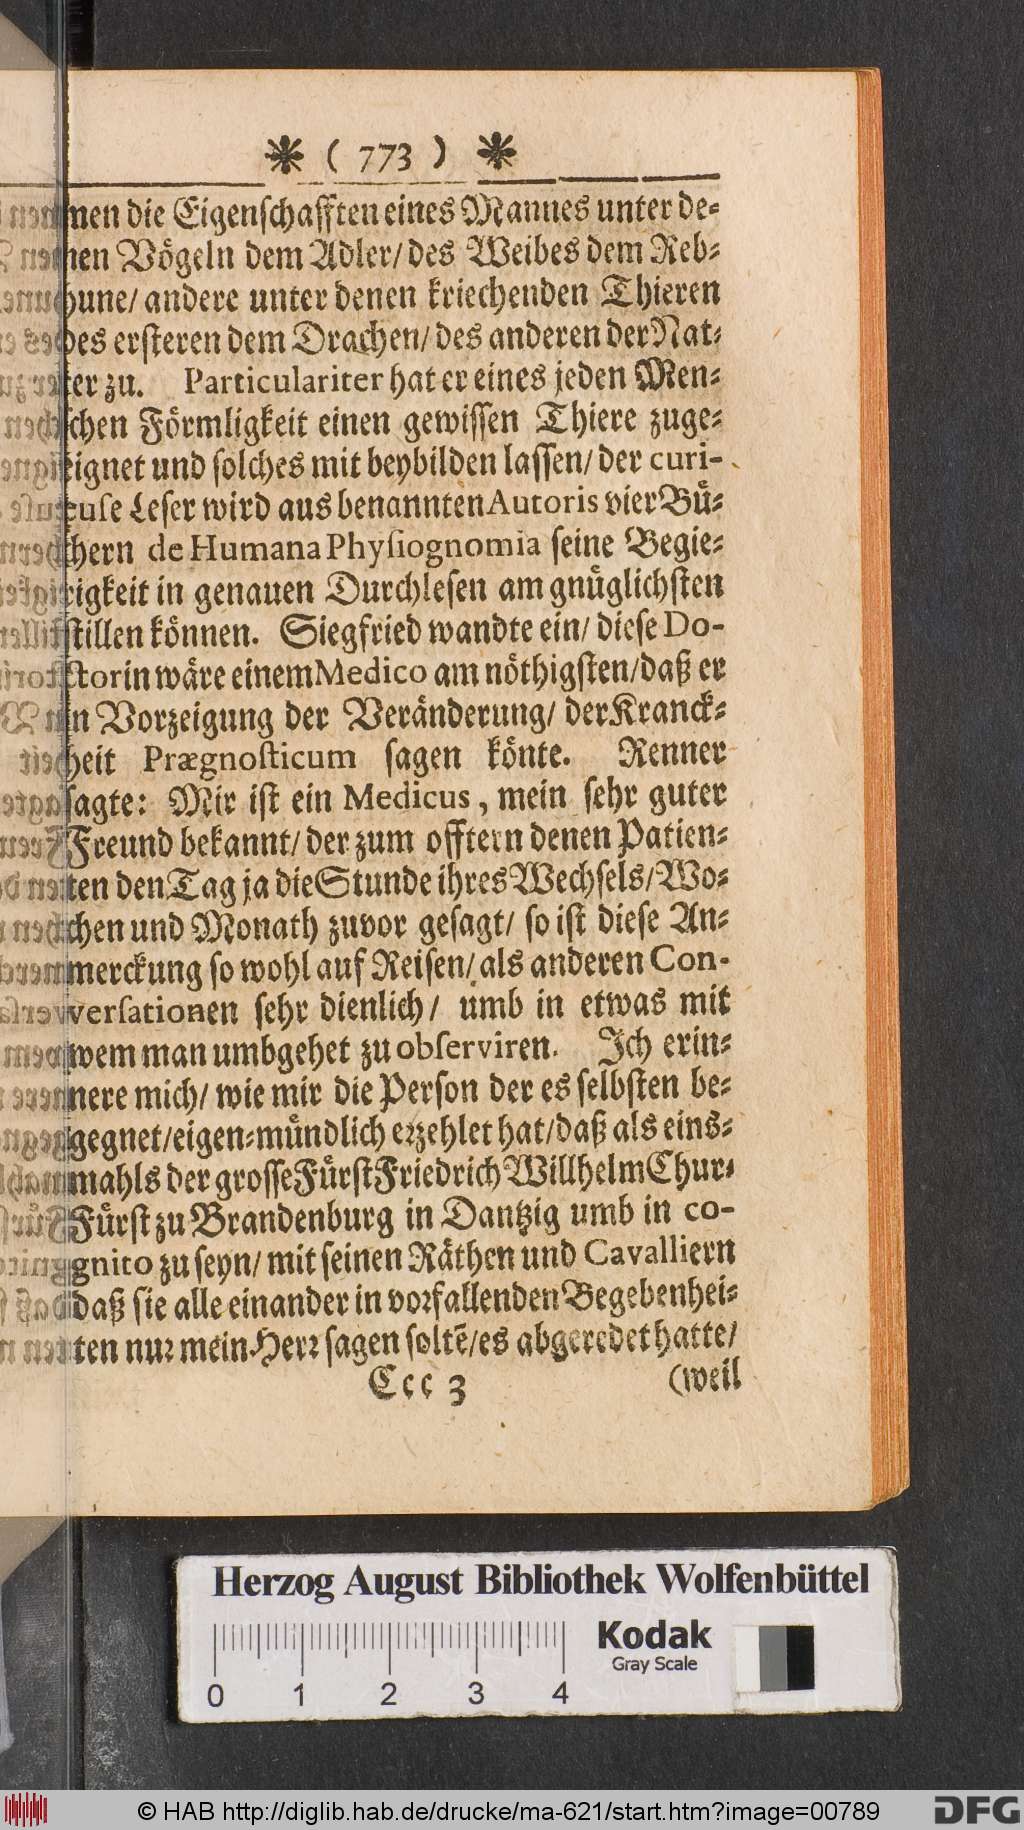 ( 773 )
men die Eigenschafften eines Mannes unter de⸗
nen Vögeln dem Adler/ des Weibes dem Reb⸗
hune/ andere unter denen kriechenden Thieren
des ersteren dem Drachen/ des anderen der Nat⸗
ter zu. Particulariter hat er eines jeden Men⸗
schen Förmligkeit einen gewissen Thiere zuge⸗
eignet und solches mit beybilden lassen/ der curi-
euse Leser wird aus benannten Autoris vier Bü⸗
chern de Humana Physiognomia seine Begie⸗
rigkeit in genauen Durchlesen am gnüglichsten
stillen können. Siegfried wandte ein/ diese Do-
ctorin wäre einem Medico am nöthigsten/ daß er
in Vorzeigung der Veränderung/ der Kranck⸗
heit Prægnosticum sagen könte. Renner
sagte: Mir ist ein Medicus, mein sehr guter
Freund bekannt/ der zum offtern denen Patien⸗
ten den Tag ja die Stunde ihres Wechsels/ Wo⸗
chen und Monath zuvor gesagt/ so ist diese An⸗
merckung so wohl auf Reisen/ als anderen Con-
versationen sehr dienlich/ umb in etwas mit
wem man umbgehet zu observiren. Ich erin⸗
nere mich/ wie mir die Person der es selbsten be⸗
gegnet/ eigen⸗mündlich erzehlet hat/ daß als eins⸗
mahls der grosse Fürst Friedrich Willhelm Chur⸗
Fürst zu Brandenburg in Dantzig umb in co-
gnito zu seyn/ mit seinen Räthen und Cavalliern
daß sie alle einander in vorfallenden Begebenhei⸗
ten nur mein Herr sagen soltẽ/ es abgeredet hatte/
Ccc 3 (weil
Herzog August Bibliothek Wolfenbüttel
Kodak
Gray Scale
0 1 2 3 4
© HAB http://diglib.hab.de/drucke/ma-621/start.htm?image=00789
DFG